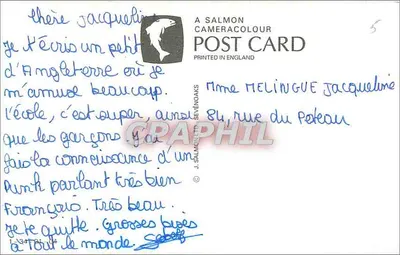 Chère Jacqueline
Je t'écris un petit
d'Angleterre où je
m'amuse beaucoup.
l'école, c'est super, ainsi
que les garçons j'ai
fais la connaissance d'un
Punk parlant très bien
Français. Très beau.
Je te quitte. Grosses bises
à Tout le monde
A SALMON
CAMERACOLOUR
POST CARD
PRINTED IN ENGLAND
5
Mme MELINGUE Jacqueline
84, rue du Poteau
© J. SALMON LTD., SEVENOAKS
CPAPHIL